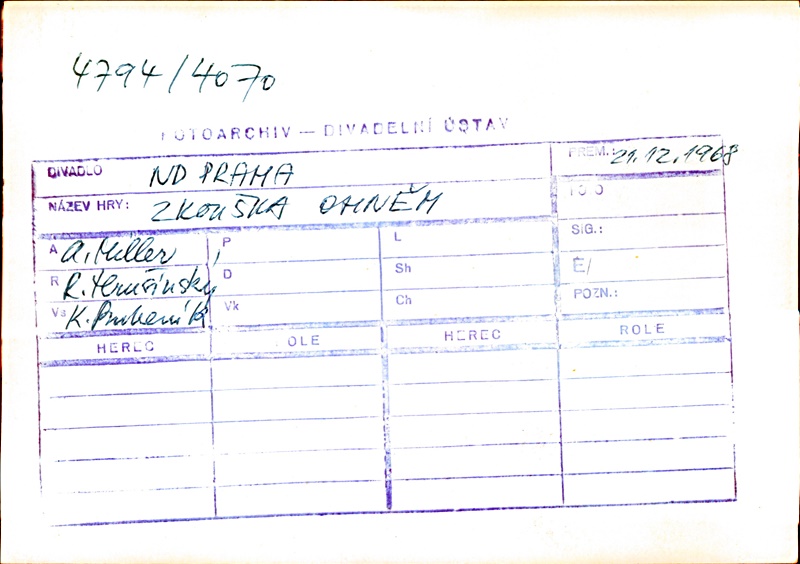 4794/4070
FOTOARCHIV — DIVADELNÍ ÚSTAV
DIVADLO ND PRAHA
PREM.: 21.12.1968
NÁZEV HRY: ZKOUŠKA OHNĚM
FOTO
A A. Miller
P
L
SIG.:
R R.
D
Sh
Č/
Vs K.
Vk
Ch
POZN.:
HEREC ROLE HEREC ROLE